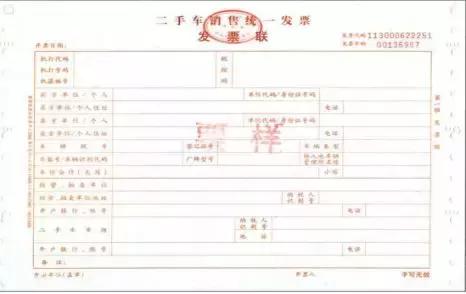 二手车销售统一发票
发票联
发票代码 113000622251
发票号码 00136987
开票日期：
机打代码
机打号码
机器编号
税控码
买方单位/个人 单位代码/身份证号码
买方单位/个人住址 电话
卖方单位/个人 单位代码/身份证号码
卖方单位/个人住址 电话
票样
车牌照号 登记证号 车辆类型
车架号/车辆识别代码 厂牌型号 转入地车辆管理所名称
车价合计（大写） 小写
经营、拍卖单位
经营、拍卖单位地址 纳税人识别号
开户银行、账号 电话
二手车市场 纳税人识别号
地址
开户银行、账号 电话
备注：
开票单位（盖章） 开票人 手写无效